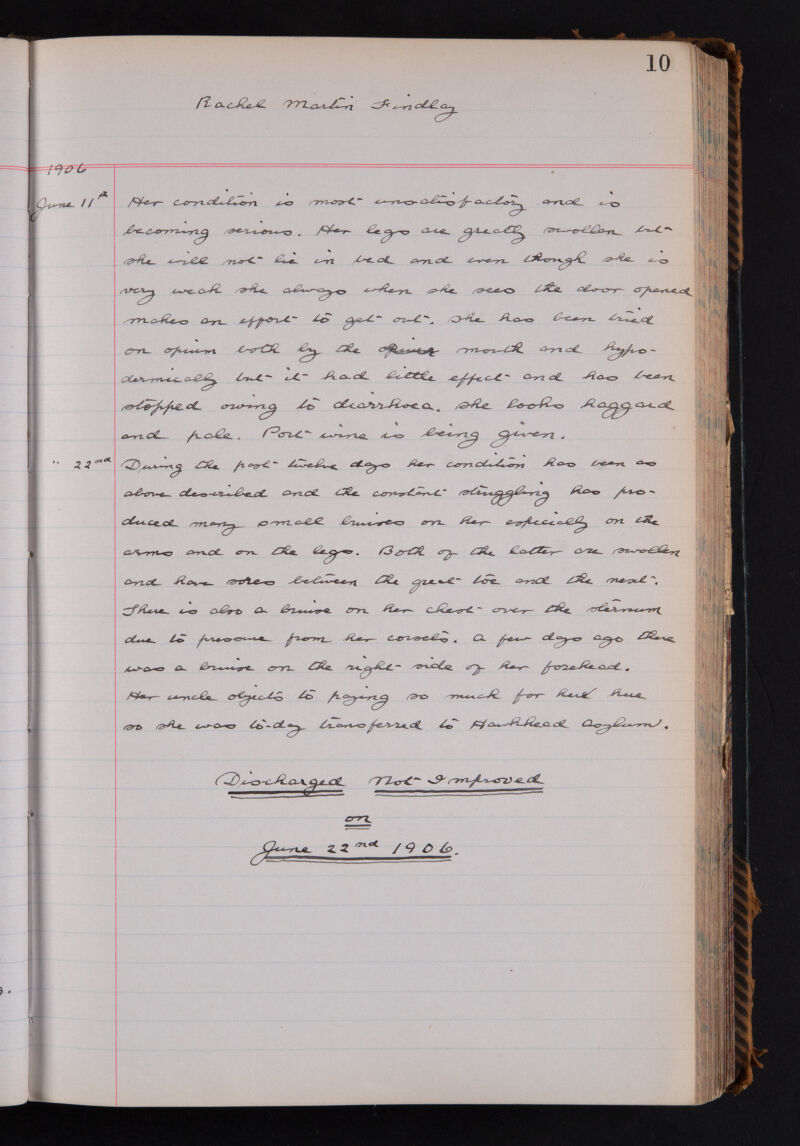 10
Rachel Martin Findlay
1906
June 11th Her condition is most unsatisfactory and is
becoming serious. Her legs are greatly swollen but
she will not lie in bed and even though she is
very weak she always when she sees the door opened
makes an effort to get out. She has been tried
on opium both by the mouth and hypo-
dermically but it had little effect and has been
stopped owing to diarrhoea. She looks haggard
and pale. Port wine is being given.
" 22nd During the past twelve days her condition has been as
above described and the constant struggling has pro-
duced many small bruises on her especially on the
arms and on the legs. Both of the latter are swollen
and have sores between the great toe and the next.
There is also a bruise on her chest over the sternum
due to pressure from her corsets. A few days ago there
was a bruise on the right side of her forehead.
Her uncle objects to paying so much for her here
so she was to-day transferred to Hawkhead Asylum.
Discharged Not Improved
on
June 22nd 1906.